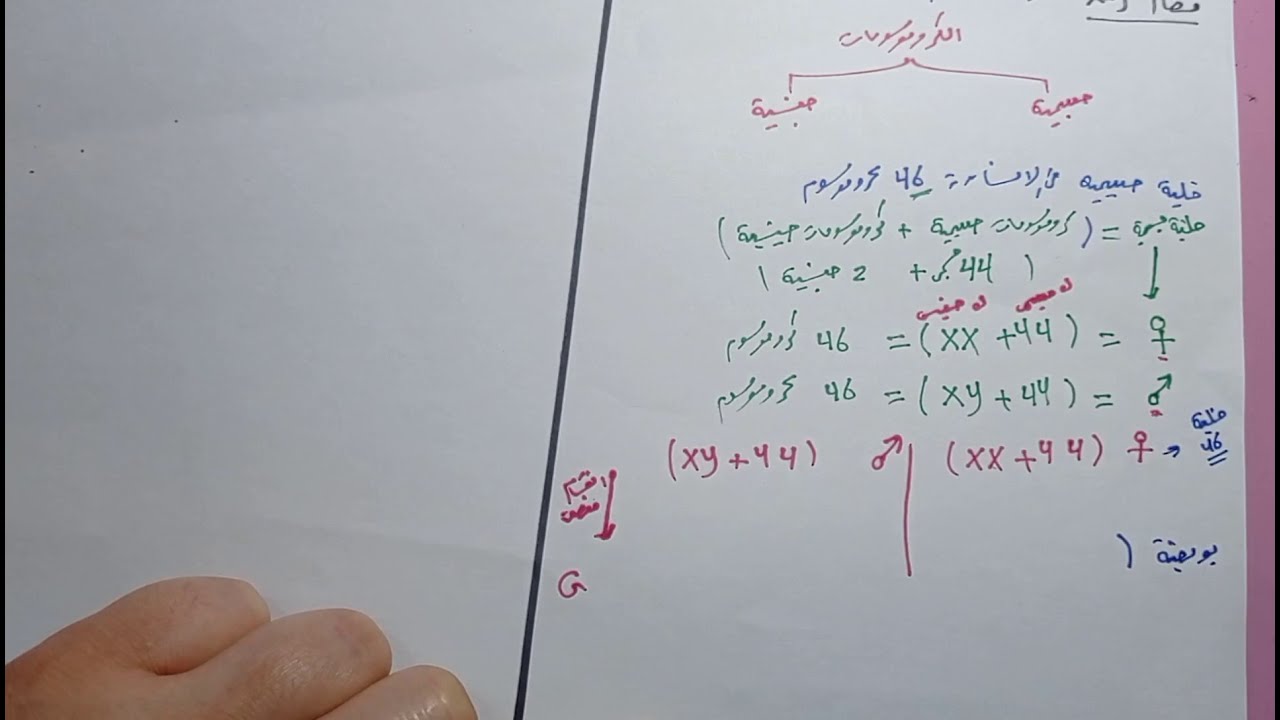 الكروموسومات
جسمية جنسية
خلية جسمية في الإنسان 46 كروموسوم
خلية جسمية = (كروموسومات جسمية + كروموسومات جنسية)
(44 جسمي + 2 جنسية)
جسمي جنسي
♀ = (44 + XX) = 46 كروموسوم
♂ = (44 + XY) = 46 كروموسوم
خلية 46
♀ (44 + XX) ♂ (44 + XY)
انقسام منصف
بويضة (
G